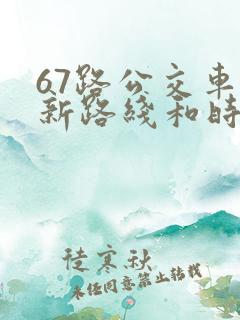 67路公交车
新路线和时
徒寒秋
未经同意禁止转载